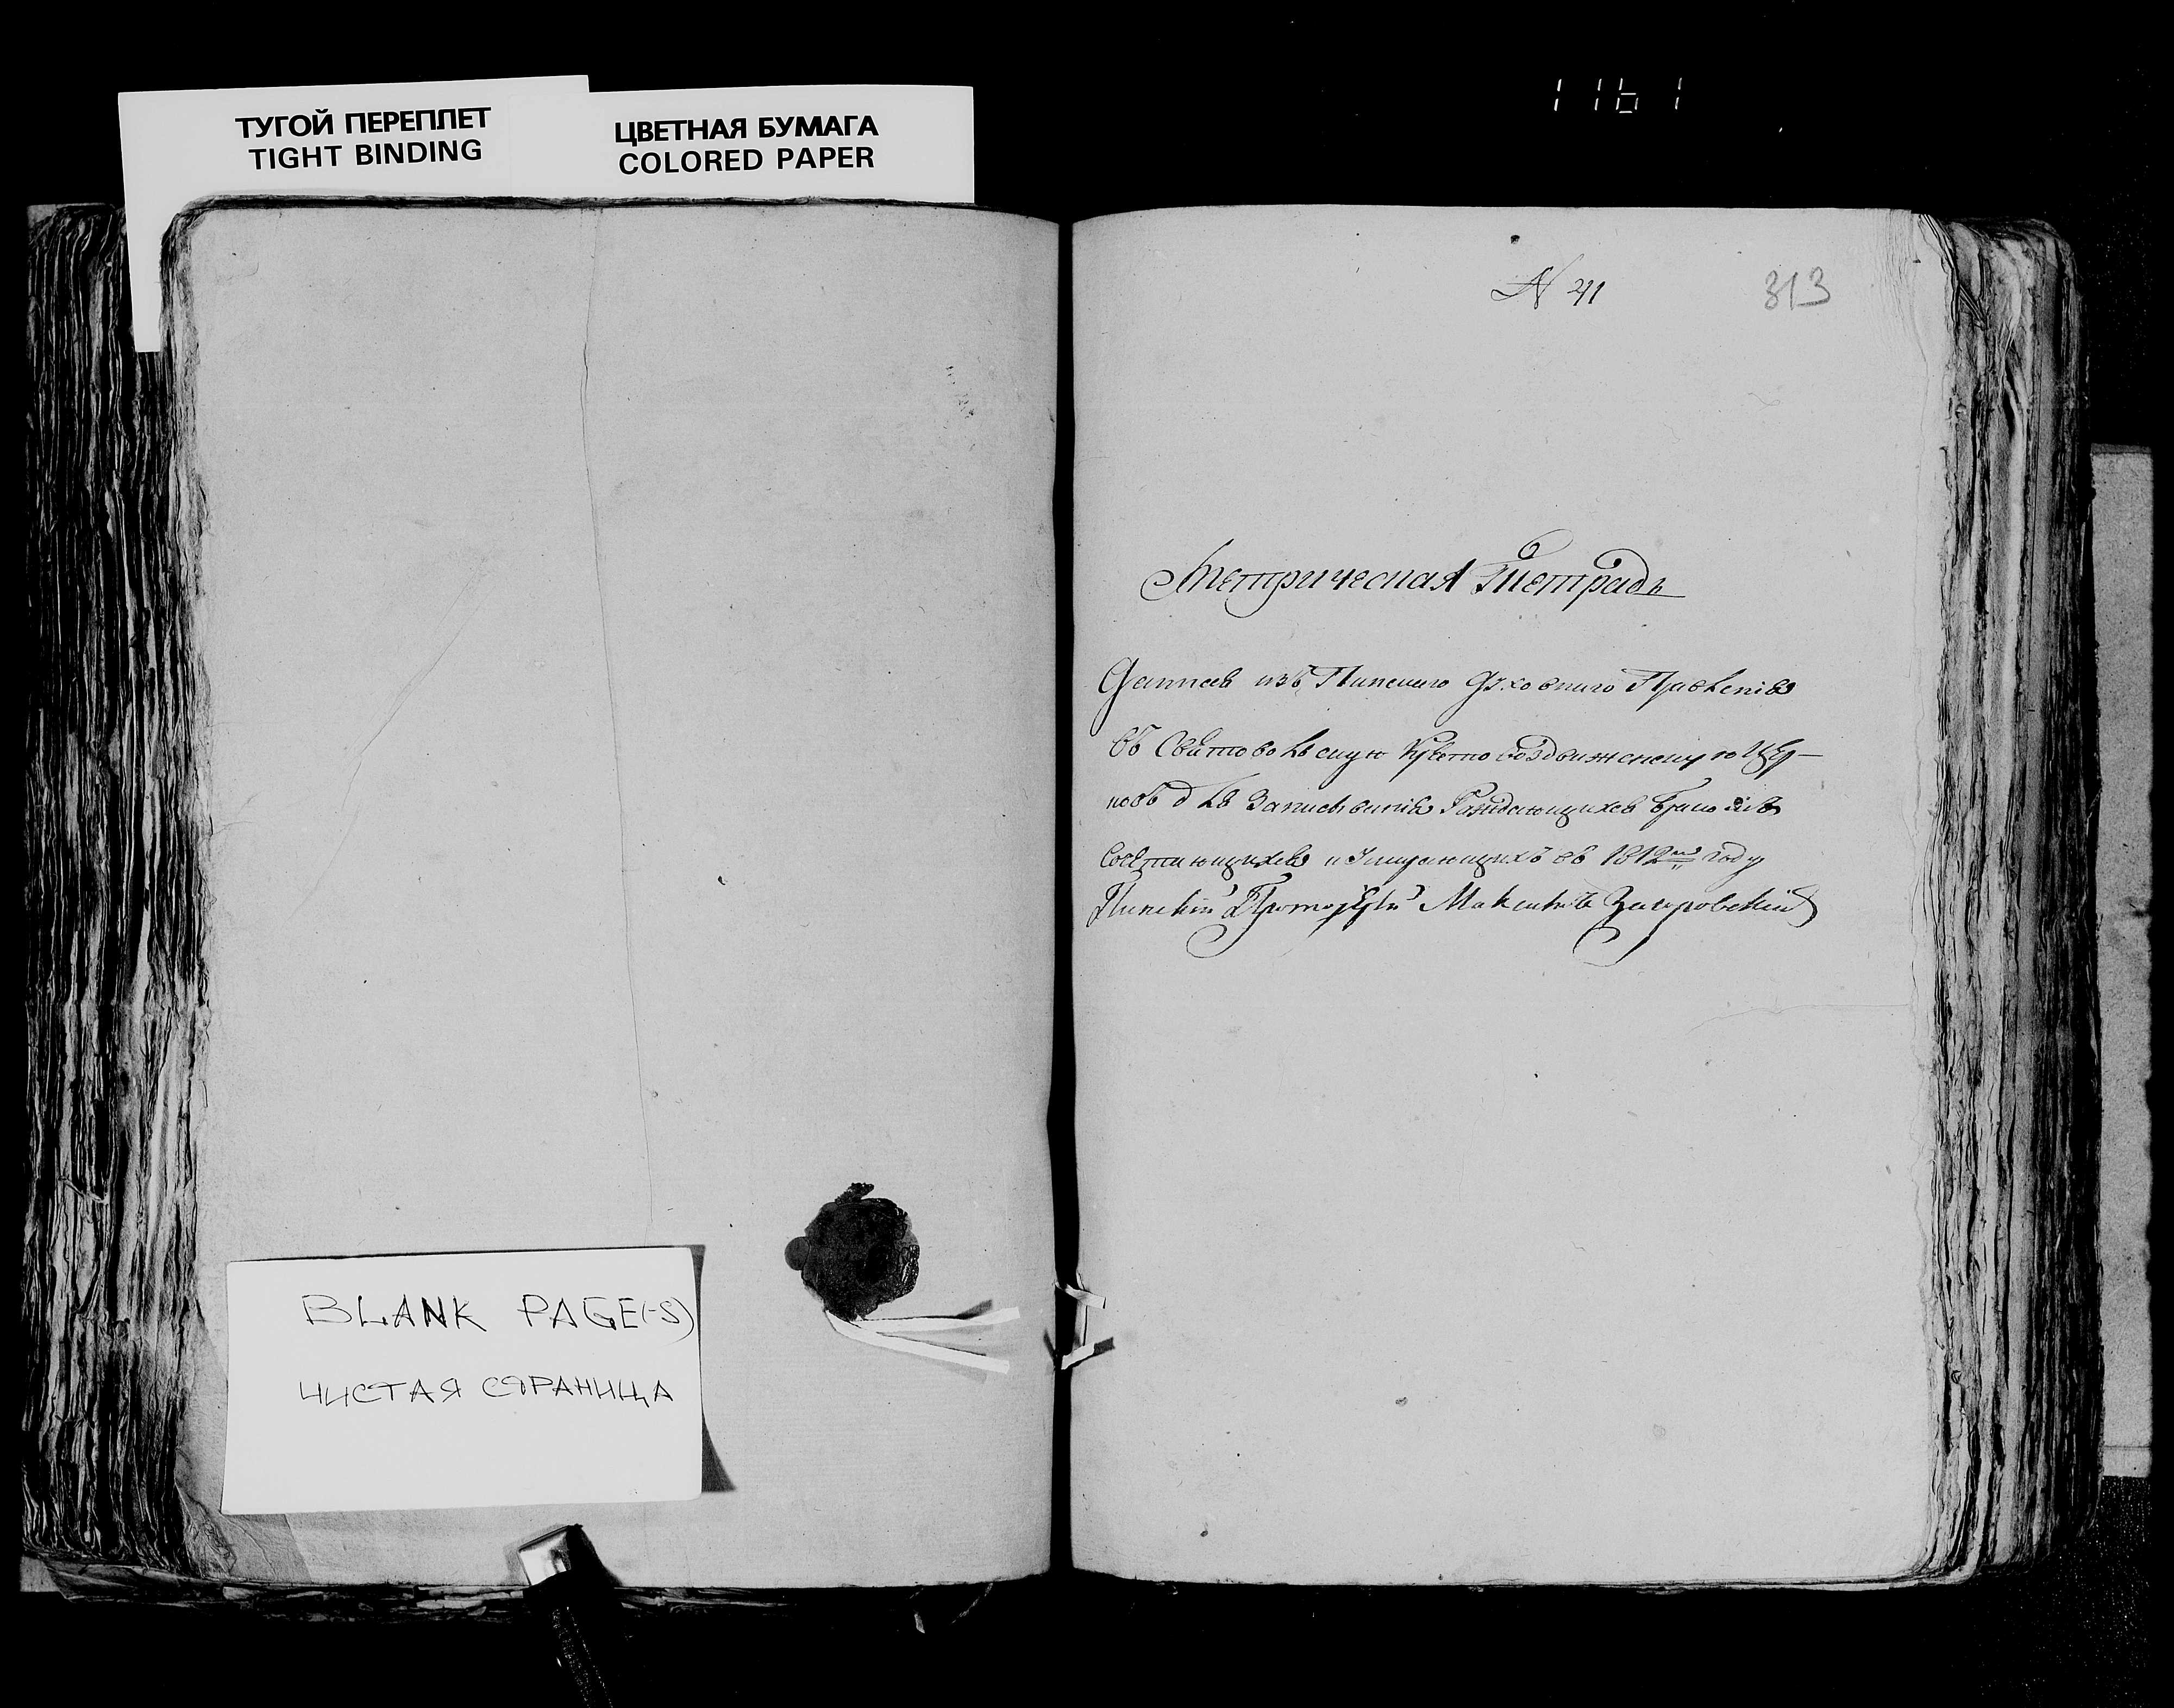 ТУГОЙ ПЕРЕПЛЕТ
TIGHT BINDING
ЦВЕТНАЯ БУМАГА
COLORED PAPER
1161
N 41
313
Метрическая Тетрадь
Данная изъ Пинского Духовнаго Правленія
въ Святовольскую Крестовоздвиженскую Цер-
ковь для Записыванія Раждающихся Бракомъ
Сочетающихся и Умирающихъ въ 1812мъ году
Пинскій Протоіерей Максимъ
BLANK PAGE(-S)
ЧИСТАЯ СТРАНИЦА